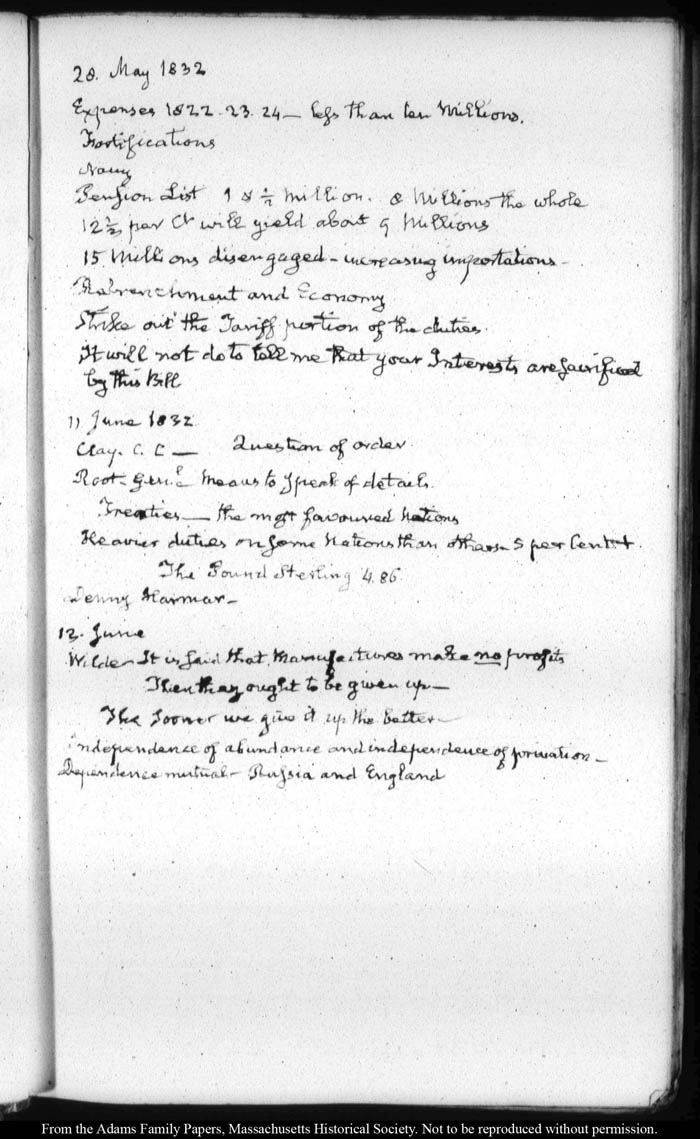 28. May 1832
Expenses 1822. 23. 24 — less than ten Millions.
Fortifications
Navy
Pension List 1 & ½ million. 8 Millions the whole
12½ per Ct will yield about 9 Millions
15 Millions disengaged - increasing importations -
Retrenchment and Economy
Strike out the Tariff portion of the duties.
It will not do to tell me that your Interests are sacrificed
by this Bill
11 June 1832.
Clay. C. C — Question of order.
Root - Genl. means to speak of details.
Treaties — the most favoured Nations
Heavier duties on some Nations than others - 5 per Cent
The Pound Sterling 4.86.
Denny Harmar -
12. June
Wilde - It is said that Manufactures make no profits
Then they ought to be given up —
The sooner we give it up the better -
Independence of abundance and independence of privation -
Dependence mutual - Russia and England
From the Adams Family Papers, Massachusetts Historical Society. Not to be reproduced without permission.